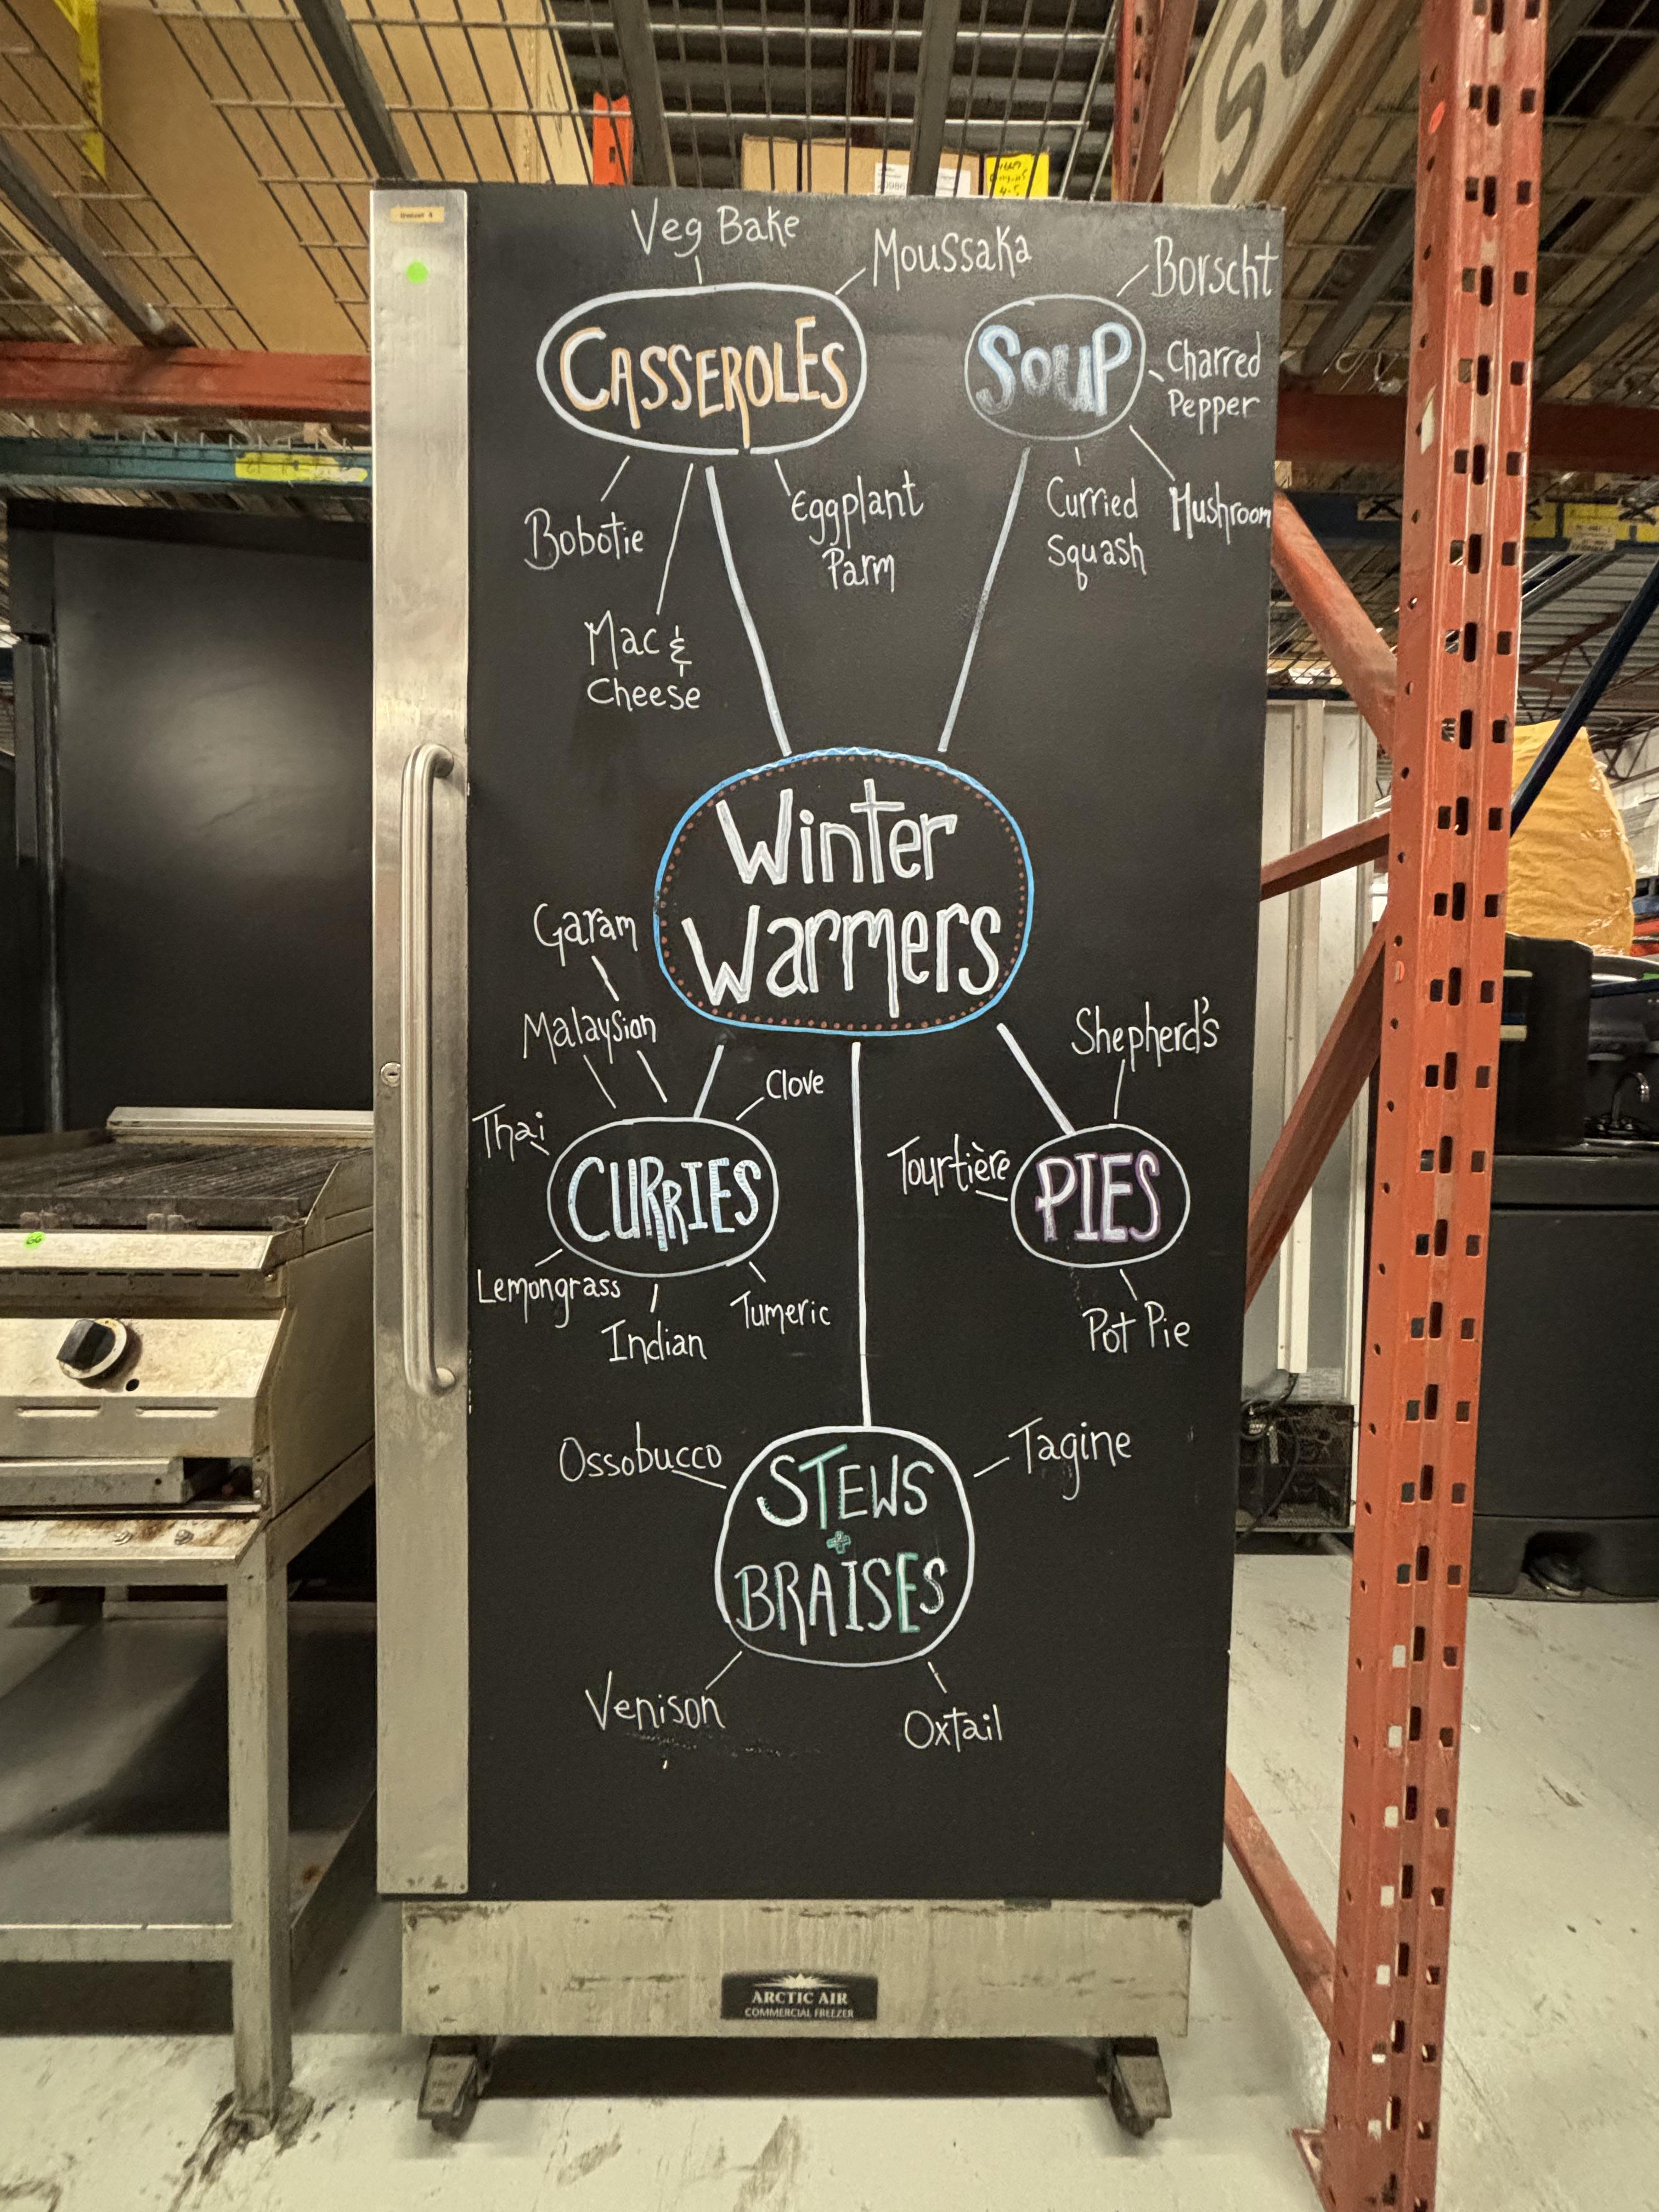 Veg Bake
Moussaka
CASSEROLES
Bobotie
Mac &
Cheese
Eggplant
Parm
SOUP
Borscht
Charred
Pepper
Curried
Squash
Mushroom
Winter
Warmers
Garam
Malaysian
Clove
Thai
CURRIES
Lemongrass
Indian
Tumeric
Shepherd's
Tourtière
PIES
Pot Pie
Ossobucco
Tagine
STEWS
+
BRAISES
Venison
Oxtail
ARCTIC AIR
COMMERCIAL FREEZER